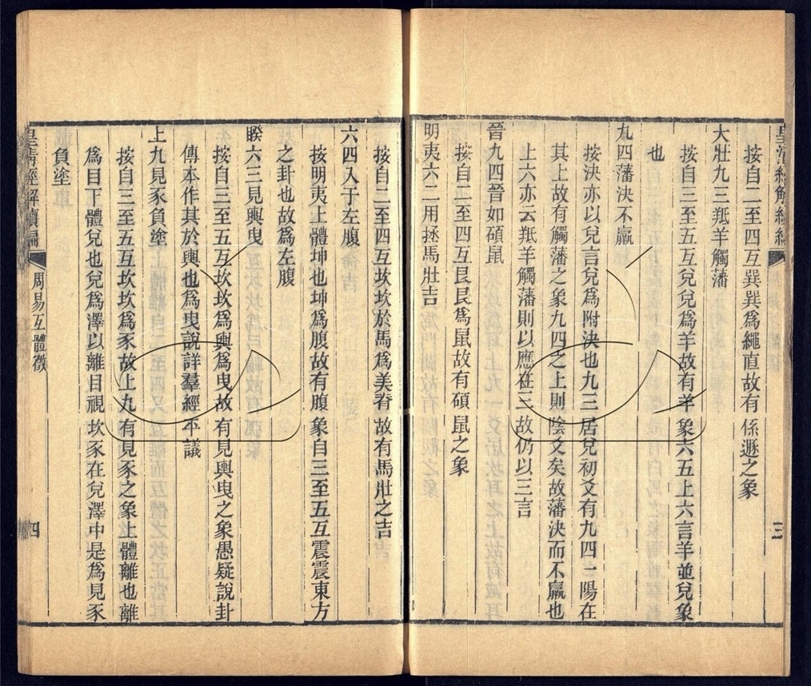 皇清經解續編
三
按自二至四互巽巽爲繩直故有係遯之象
大壯九三羝羊觸藩
按自三至五互兌兌爲羊故有羊象六五上六言羊並兌象
也
九四藩決不羸
按決亦以兌言兌爲附決也九三居兌初爻有九四一陽在
其上故有觸藩之象九四之上則陰爻矣故藩決而不羸也
上六亦云羝羊觸藩則以應在三故仍以三言
晉九四晉如碩鼠
按自二至四互艮艮爲鼠故有碩鼠之象
明夷六二用拯馬壯吉
按自二至四互坎坎於馬爲美脊故有馬壯之吉
六四入于左腹
按明夷上體坤也坤爲腹故有腹象自三至五互震震東方
之卦也故爲左腹
睽六三見輿曳
按自三至五互坎坎爲輿爲曳故有見輿曳之象愚疑說卦
傳本作其於輿也爲曳說詳羣經平議
上九見豕負塗
按自三至五互坎坎爲豕故上九有見豕之象上體離也離
爲目下體兌也兌爲澤以離目視坎豕在兌澤中是爲見豕
負塗
皇清經解續編
周易互體徵
四